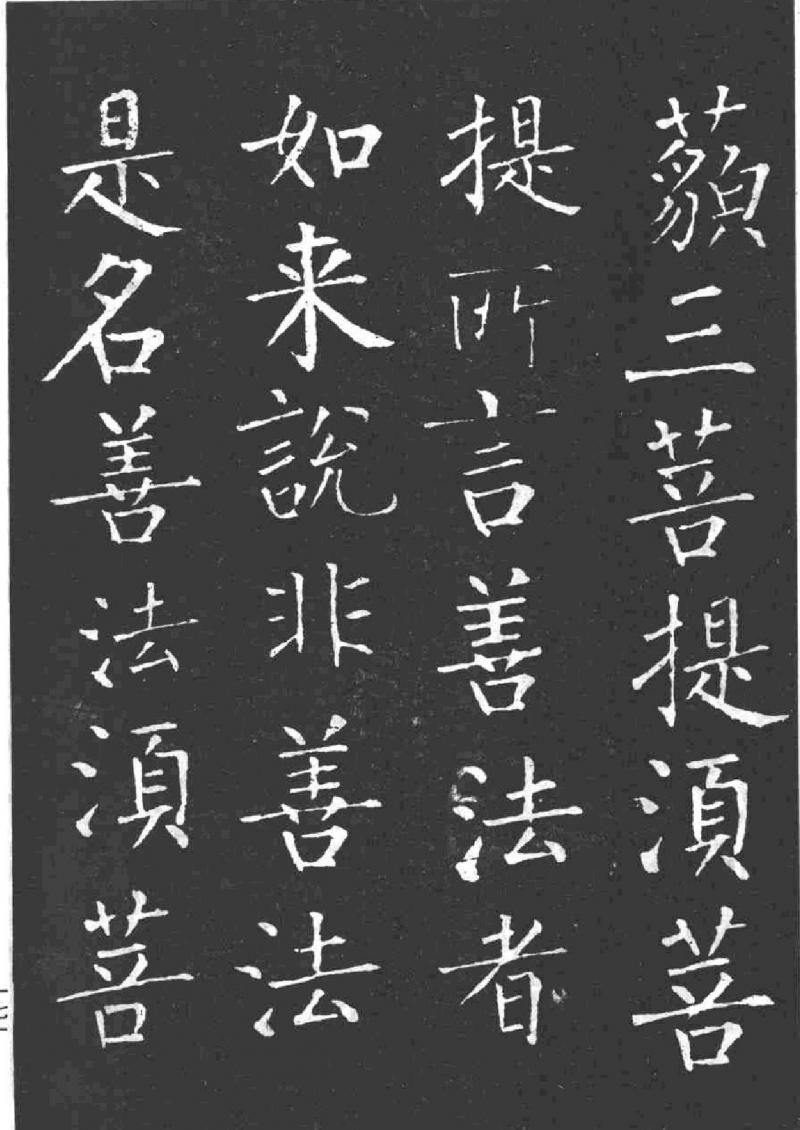 藐三菩提須菩
提所言善法者
如来說非善法
是名善法須菩